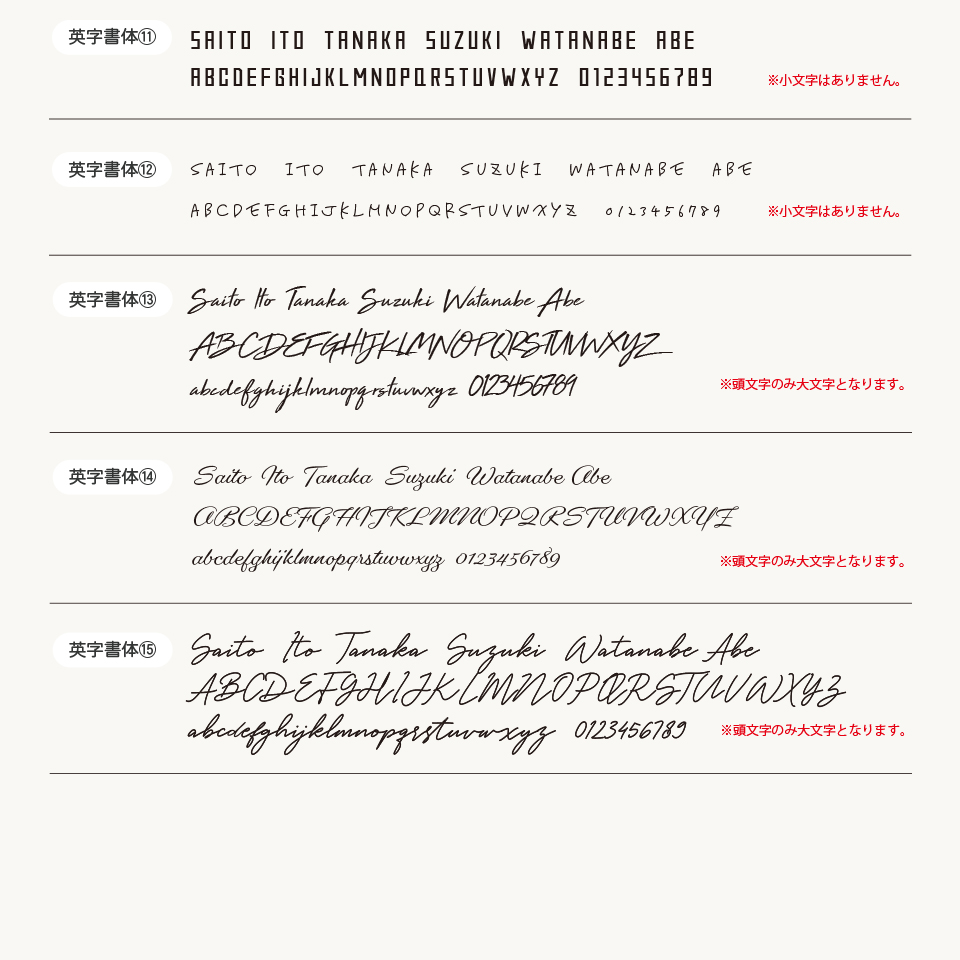 英字書体⑪
SAITO ITO TANAKA SUZUKI WATANABE ABE
ABCDEFGHIJKLMNOPQRSTUVWXYZ 0123456789
※小文字はありません。
英字書体⑫
SAITO ITO TANAKA SUZUKI WATANABE ABE
ABCDEFGHIJKLMNOPQRSTUVWXYZ 0123456789
※小文字はありません。
英字書体⑬
Saito Ito Tanaka Suzuki Watanabe Abe
ABCDEFGHIJKLMNOPQRSTUVWXYZ
abcdefghijklmnopqrstuvwxyz 0123456789
※頭文字のみ大文字となります。
英字書体⑭
Saito Ito Tanaka Suzuki Watanabe Abe
ABCDEFGHIJKLMNOPQRSTUVWXYZ
abcdefghijklmnopqrstuvwxyz 0123456789
※頭文字のみ大文字となります。
英字書体⑮
Saito Ito Tanaka Suzuki Watanabe Abe
ABCDEFGHIJKLMNOPQRSTUVWXYZ
abcdefghijklmnopqrstuvwxyz 0123456789
※頭文字のみ大文字となります。